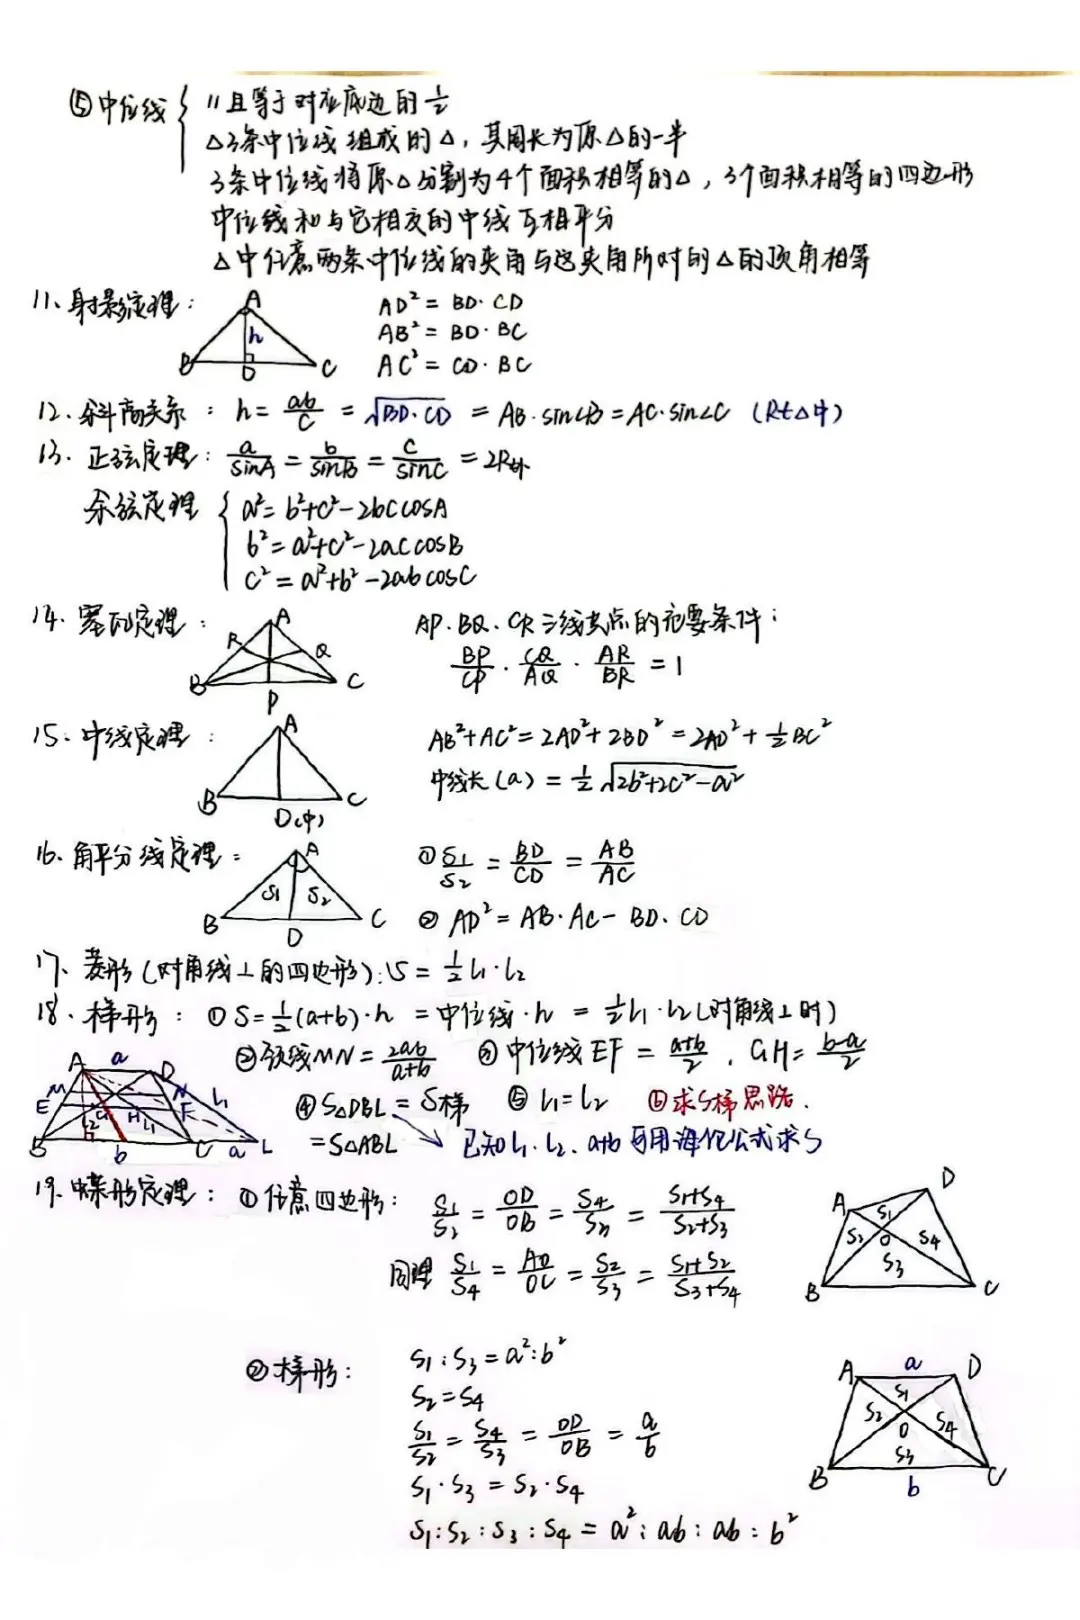 ⑤中位线 { // 且等于对应底边的 1/2
△3条中位线组成的△，其周长为原△的一半
3条中位线将原△分割为4个面积相等的△，3个面积相等的四边形
中位线和与它相交的中线互相平分
△中任意两条中位线的夹角与这夹角所对的△的顶角相等
11、射影定理：
A
h
B D C
AD² = BD·CD
AB² = BD·BC
AC² = CD·BC
12、斜高关系：h = ab/c = √(BD·CD) = AB·sin∠B = AC·sin∠C (Rt△中)
13、正弦定理：a/sinA = b/sinB = c/sinC = 2R外
余弦定理 { a² = b²+c²-2bccosA
b² = a²+c²-2accosB
c² = a²+b²-2abcosC
14、塞瓦定理：
A
R Q
B P C
AP、BQ、CR三线共点的充要条件：
BP/CP · CQ/AQ · AR/BR = 1
15、中线定理：
A
B D(中) C
AB²+AC² = 2AD²+2BD² = 2AD²+1/2BC²
中线长(a) = 1/2√(2b²+2c²-a²)
16、角平分线定理：
A
S₁ S₂
B D C
① S₁/S₂ = BD/CD = AB/AC
② AD² = AB·AC - BD·CD
17、菱形(对角线⊥的四边形)：S = 1/2 l₁·l₂
18、梯形：① S = 1/2(a+b)·h = 中位线·h = 1/2 l₁·l₂(对角线⊥时)
② 颈线MN = 2ab/(a+b) ③ 中位线EF = (a+b)/2，GH = (b-a)/2
④ S△DBL = S梯 ⑤ l₁=l₂ ⑥ 求S梯思路.
= S△ABL 已知l₁、l₂、a+b可用海伦公式求S
A a D
M N l₁
E G H F
l₂ h l₁
B b C a L
19、蝶形定理：① 任意四边形：S₁/S₂ = OD/OB = S₄/S₃ = (S₁+S₄)/(S₂+S₃)
同理 S₁/S₄ = AO/OC = S₂/S₃ = (S₁+S₂)/(S₃+S₄)
A D
S₁
S₂ O S₄
S₃
B C
② 梯形：S₁:S₃ = a²:b²
S₂ = S₄
S₁/S₂ = S₄/S₃ = OD/OB = a/b
S₁·S₃ = S₂·S₄
S₁:S₂:S₃:S₄ = a²:ab:ab:b²
A a D
S₁
S₂ O S₄
S₃
B b C